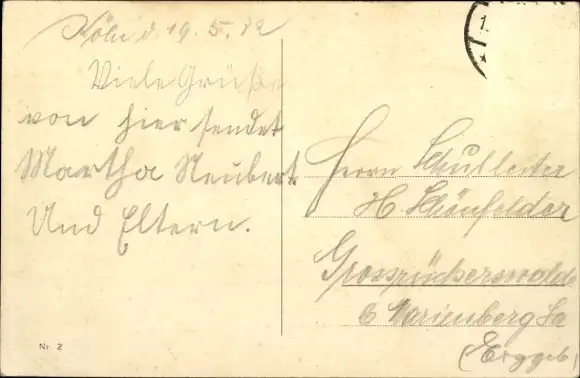 Köln d. 19. 5. 12
Viele Grüße
von hier sendet
Martha Neubert
Und Eltern.
Nr. 2
Herrn Schulleiter
H. Schönfelder
Grossrückerswalde
b Marienberg Sa
(Erzgeb)